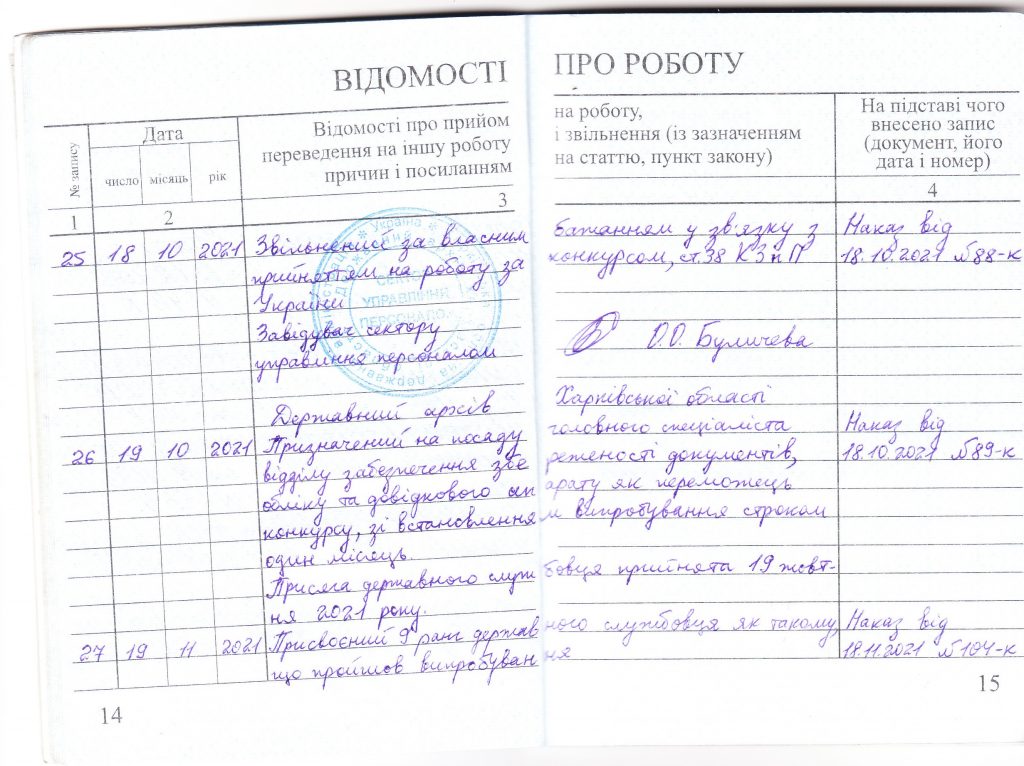 ВІДОМОСТІ ПРО РОБОТУ
№ запису
Дата
число місяць рік
Відомості про прийом на роботу,
переведення на іншу роботу і звільнення (із зазначенням
причин і посиланням на статтю, пункт закону)
На підставі чого
внесено запис
(документ, його
дата і номер)
1 2 3 4
25 18 10 2021 Звільнений за власним бажанням у зв'язку з Наказ від
прийняттям на роботу за конкурсом, ст.38 КЗпП 18.10.2021 №88-к
України
Завідувач сектору
управління персоналом О.О. Буличева
Україна
СЕКТОР
УПРАВЛІННЯ
ПЕРСОНАЛОМ
Державний архів Харківської області
26 19 10 2021 Призначений на посаду головного спеціаліста Наказ від
відділу забезпечення збе реженості документів, 18.10.2021 №89-к
обліку та довідкового ап арату як переможець
конкурсу, зі встановлення м випробування строком
один місяць.
Присяга державного служ бовця прийнята 19 жовт-
ня 2021 року.
27 19 11 2021 Присвоєний 9 ранг держав ного службовця як такому, Наказ від
що пройшов випробуван ня 18.11.2021 №104-к
14 15